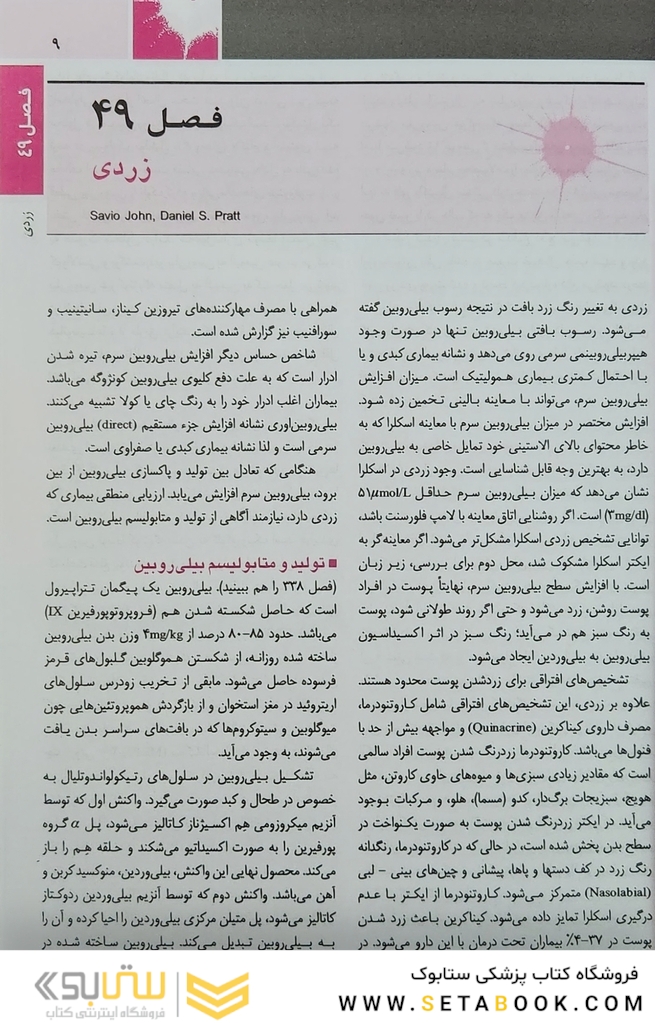 ۹
فصل ۴۹
زردی
فصل ۴۹
زردی
Savio John, Daniel S. Pratt
زردی به تغییر رنگ زرد بافت در نتیجه رسوب بیلی‌روبین گفته
می‌شود. رسوب بافتی بیلی‌روبین تنها در صورت وجود
هیپربیلی‌روبینمی سرمی روی می‌دهد و نشانه بیماری کبدی و یا
با احتمال کمتری بیماری همولیتیک است. میزان افزایش
بیلی‌روبین سرم، می‌تواند با معاینه بالینی تخمین زده شود.
افزایش مختصر در میزان بیلی‌روبین سرم با معاینه اسکلرا که به
خاطر محتوای بالای الاستینی خود تمایل خاصی به بیلی‌روبین
دارد، به بهترین وجه قابل شناسایی است. وجود زردی در اسکلرا
نشان می‌دهد که میزان بیلی‌روبین سرم حداقل ۵۱μmol/L
(۳mg/dl) است. اگر روشنایی اتاق معاینه با لامپ فلورسنت باشد،
توانایی تشخیص زردی اسکلرا مشکل‌تر می‌شود. اگر معاینه‌گر به
ایکتر اسکلرا مشکوک شد، محل دوم برای بررسی، زیر زبان
است. با افزایش سطح بیلی‌روبین سرم، نهایتاً پوست در افراد
پوست روشن، زرد می‌شود و حتی اگر روند طولانی شود، پوست
به رنگ سبز هم در می‌آید؛ رنگ سبز در اثر اکسیداسیون
بیلی‌روبین به بیلی‌وردین ایجاد می‌شود.
تشخیص‌های افتراقی برای زردشدن پوست محدود هستند.
علاوه بر زردی، این تشخیص‌های افتراقی شامل کاروتنودرما،
مصرف داروی کیناکرین (Quinacrine) و مواجهه بیش از حد با
فنول‌ها می‌باشد. کاروتنودرما زردرنگ شدن پوست افراد سالمی
است که مقادیر زیادی سبزی‌ها و میوه‌های حاوی کاروتن، مثل
هویج، سبزیجات برگ‌دار، کدو (مسما)، هلو، و مرکبات بوجود
می‌آید. در ایکتر زردرنگ شدن پوست به صورت یکنواخت در
سطح بدن پخش شده است، در حالی که در کاروتنودرما، رنگدانه
رنگ زرد در کف دستها و پاها، پیشانی و چین‌های بینی - لبی
(Nasolabial) متمرکز می‌شود. کاروتنودرما از ایکتر با عدم
درگیری اسکلرا تمایز داده می‌شود. کیناکرین باعث زرد شدن
پوست در ۳۷-۴٪ بیماران تحت درمان با این دارو می‌شود. در
همراهی با مصرف مهارکننده‌های تیروزین کیناز، سانیتینیب و
سورافنیب نیز گزارش شده است.
شاخص حساس دیگر افزایش بیلی‌روبین سرم، تیره شدن
ادرار است که به علت دفع کلیوی بیلی‌روبین کونژوگه می‌باشد.
بیماران اغلب ادرار خود را به رنگ چای یا کولا تشبیه می‌کنند.
بیلی‌روبین‌اوری نشانه افزایش جزء مستقیم (direct) بیلی‌روبین
سرمی است و لذا نشانه بیماری کبدی یا صفراوی است.
هنگامی که تعادل بین تولید و پاکسازی بیلی‌روبین از بین
برود، بیلی‌روبین سرم افزایش می‌یابد. ارزیابی منطقی بیماری که
زردی دارد، نیازمند آگاهی از تولید و متابولیسم بیلی‌روبین است.
■ تولید و متابولیسم بیلی‌روبین
(فصل ۳۳۸ را هم ببینید). بیلی‌روبین یک پیگمان تتراپیرول
است که حاصل شکسته شدن هم (فروپروتوپورفیرین IX)
می‌باشد. حدود ۸۵-۸۰ درصد از ۴mg/kg وزن بدن بیلی‌روبین
ساخته شده روزانه، از شکستن هموگلوبین گلبول‌های قرمز
فرسوده حاصل می‌شود. مابقی از تخریب زودرس سلول‌های
اریتروئید در مغز استخوان و از بازگردش هموپروتئین‌هایی چون
میوگلوبین و سیتوکروم‌ها که در بافت‌های سراسر بدن یافت
می‌شوند، به وجود می‌آید.
تشکیل بیلی‌روبین در سلول‌های رتیکولواندوتلیال به
خصوص در طحال و کبد صورت می‌گیرد. واکنش اول که توسط
آنزیم میکروزومی هِم اکسیژناز کاتالیز می‌شود، پل α گروه
پورفیرین را به صورت اکسیداتیو می‌شکند و حلقه هِم را باز
می‌کند. محصول نهایی این واکنش، بیلی‌وردین، منوکسیدکربن و
آهن می‌باشد. واکنش دوم که توسط آنزیم بیلی‌وردین ردوکتاز
کاتالیز می‌شود، پل متیلن مرکزی بیلی‌وردین را احیا کرده و آن را
به بیلی‌روبین تبدیل می‌کند. بیلی‌روبین ساخته شده در
فروشگاه کتاب پزشکی ستابوک
WWW.SETABOOK.COM
ستابوک
فروشگاه اینترنتی کتاب